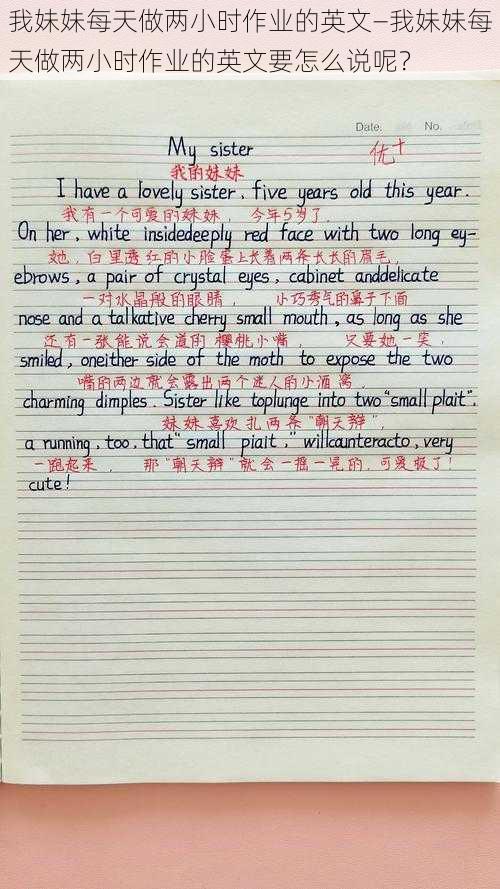 我妹妹每天做两小时作业的英文—我妹妹每
天做两小时作业的英文要怎么说呢?
Date. No.
My sister 优+
我的妹妹
I have a lovely sister, five years old this year.
我有一个可爱的妹妹, 今年5岁了.
On her, white insidedeeply red face with two long ey-
她, 白里透红的小脸蛋上长着两条长长的眉毛,
ebrows, a pair of crystal eyes, cabinet anddelicate
一对水晶般的眼睛, 小巧秀气的鼻子下面
nose and a talkative cherry small mouth, as long as she
还有一张能说会道的樱桃小嘴, 只要她一笑,
smiled, oneither side of the moth to expose the two
嘴的两边就会露出两个迷人的小酒窝.
charming dimples. Sister like toplunge into two "small plait".
妹妹喜欢扎两条"朝天辫",
a running, too, that "small piait," willcaunteracto, very
一跑起来, 那"朝天辫"就会一摇一晃的, 可爱极了!
cute!